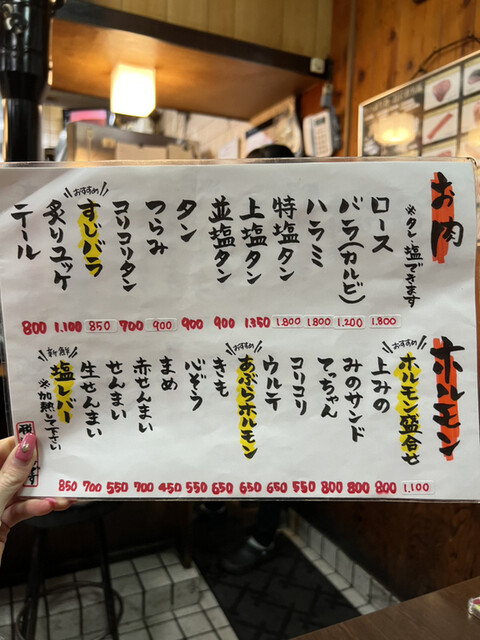 お肉
※タレ、塩できます
ロース 1,800
バラ(カルビ) 1,200
ハラミ 1,800
特塩タン 1,800
上塩タン 1,350
並塩タン 900
タン 900
つらみ 900
コリコリタン 700
おすすめ
すじバラ 850
炙りユッケ 1,100
テール 800
ホルモン
おすすめ
ホルモン盛合せ 1,100
上みの 800
みのサンド 800
てっちゃん 800
コリコリ 550
ウルテ 650
おすすめ
あぶらホルモン 650
きも 650
心ぞう 550
まめ 450
赤せんまい 700
せんまい 550
生せんまい 700
新鮮
塩レバー 850
※加熱して下さい